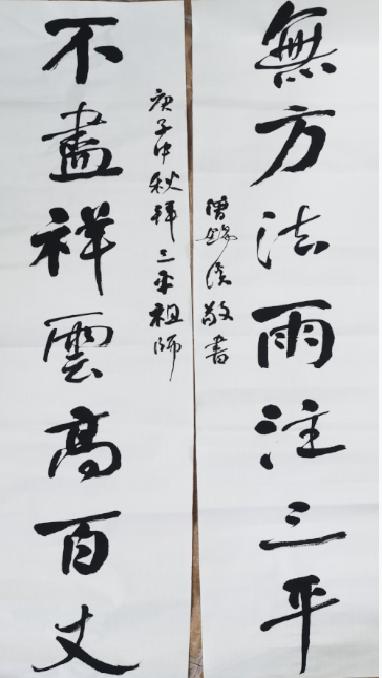 無方法雨注三平
不盡祥雲高百丈
庚子中秋拜三平祖師
敬書